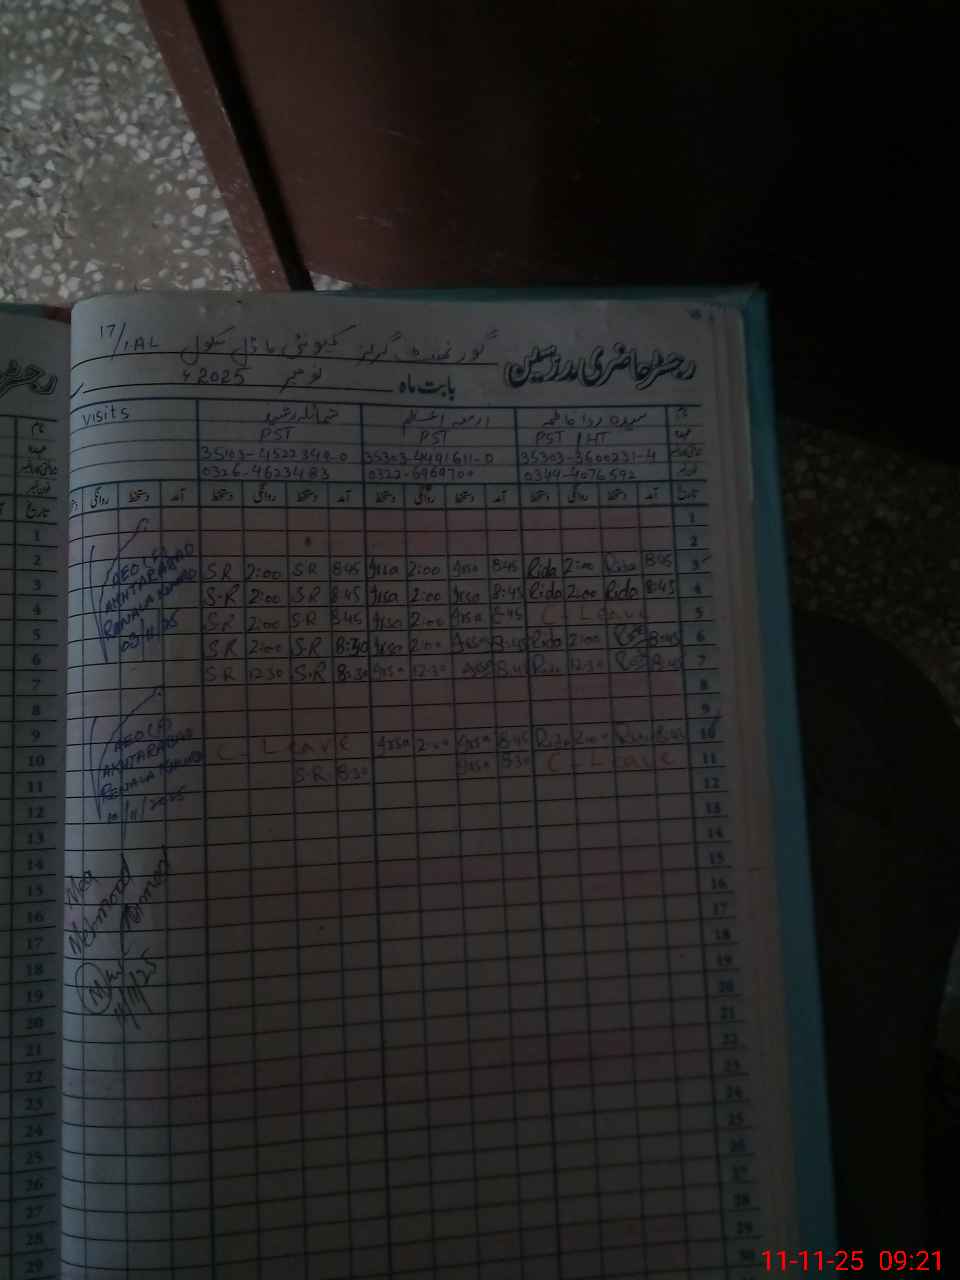 رجسٹر حاضری مدرسین گورنمنٹ گرلز کمیونٹی ماڈل سکول 17/1.AL
بابت ماہ نومبر 2025ء
نام سیدہ ردا فاطمہ شمائلہ رشید Visits
عہدہ PST / HT PST PST
35303-3600231-4 35303-4491611-0 35103-4522349-0
0344-4076592 0322-6969700 0326-4623483
تاریخ آمد دستخط روانگی دستخط آمد دستخط روانگی دستخط آمد دستخط روانگی دستخط آمد دستخط روانگی
1
2
3 8:45 Rida 2:00 Rida 8:45 Irsa 2:00 Irsa 8:45 S-R 2:00 S-R
4 8:45 Rida 2:00 Rida 8:45 Irsa 2:00 Irsa 8:45 S-R 2:00 S-R
5 C-Leave 8:45 Irsa 2:00 Irsa 8:45 S-R 2:00 S-R
6 8:45 Rida 2:00 Rida 8:45 Irsa 2:00 Irsa 8:30 S-R 2:00 S-R
7 8:45 Rida 12:30 Rida 8:45 Irsa 12:30 Irsa 8:30 S-R 12:30 S-R
8
9
10 8:45 Rida 2:00 Rida 8:45 Irsa 2:00 Irsa C-Leave
11 C-Leave 8:30 Irsa 8:30 S-R
12
13
14
15
16
17
18
19
20
21
22
23
24
25
26
27
28
29
30
AEO (F)
AKHTARABAD
RENALA KHURD
03/11/25
AEO (F)
AKHTARABAD
RENALA KHURD
10/11/2025
Mea
Mehmood
Ahmad
11/11/25
رجسٹر
نام
عہدہ
تاریخ
1
2
3
4
5
6
7
8
9
10
11
12
13
14
15
16
17
18
19
20
21
22
23
24
25
26
27
28
29
11-11-25 09:21